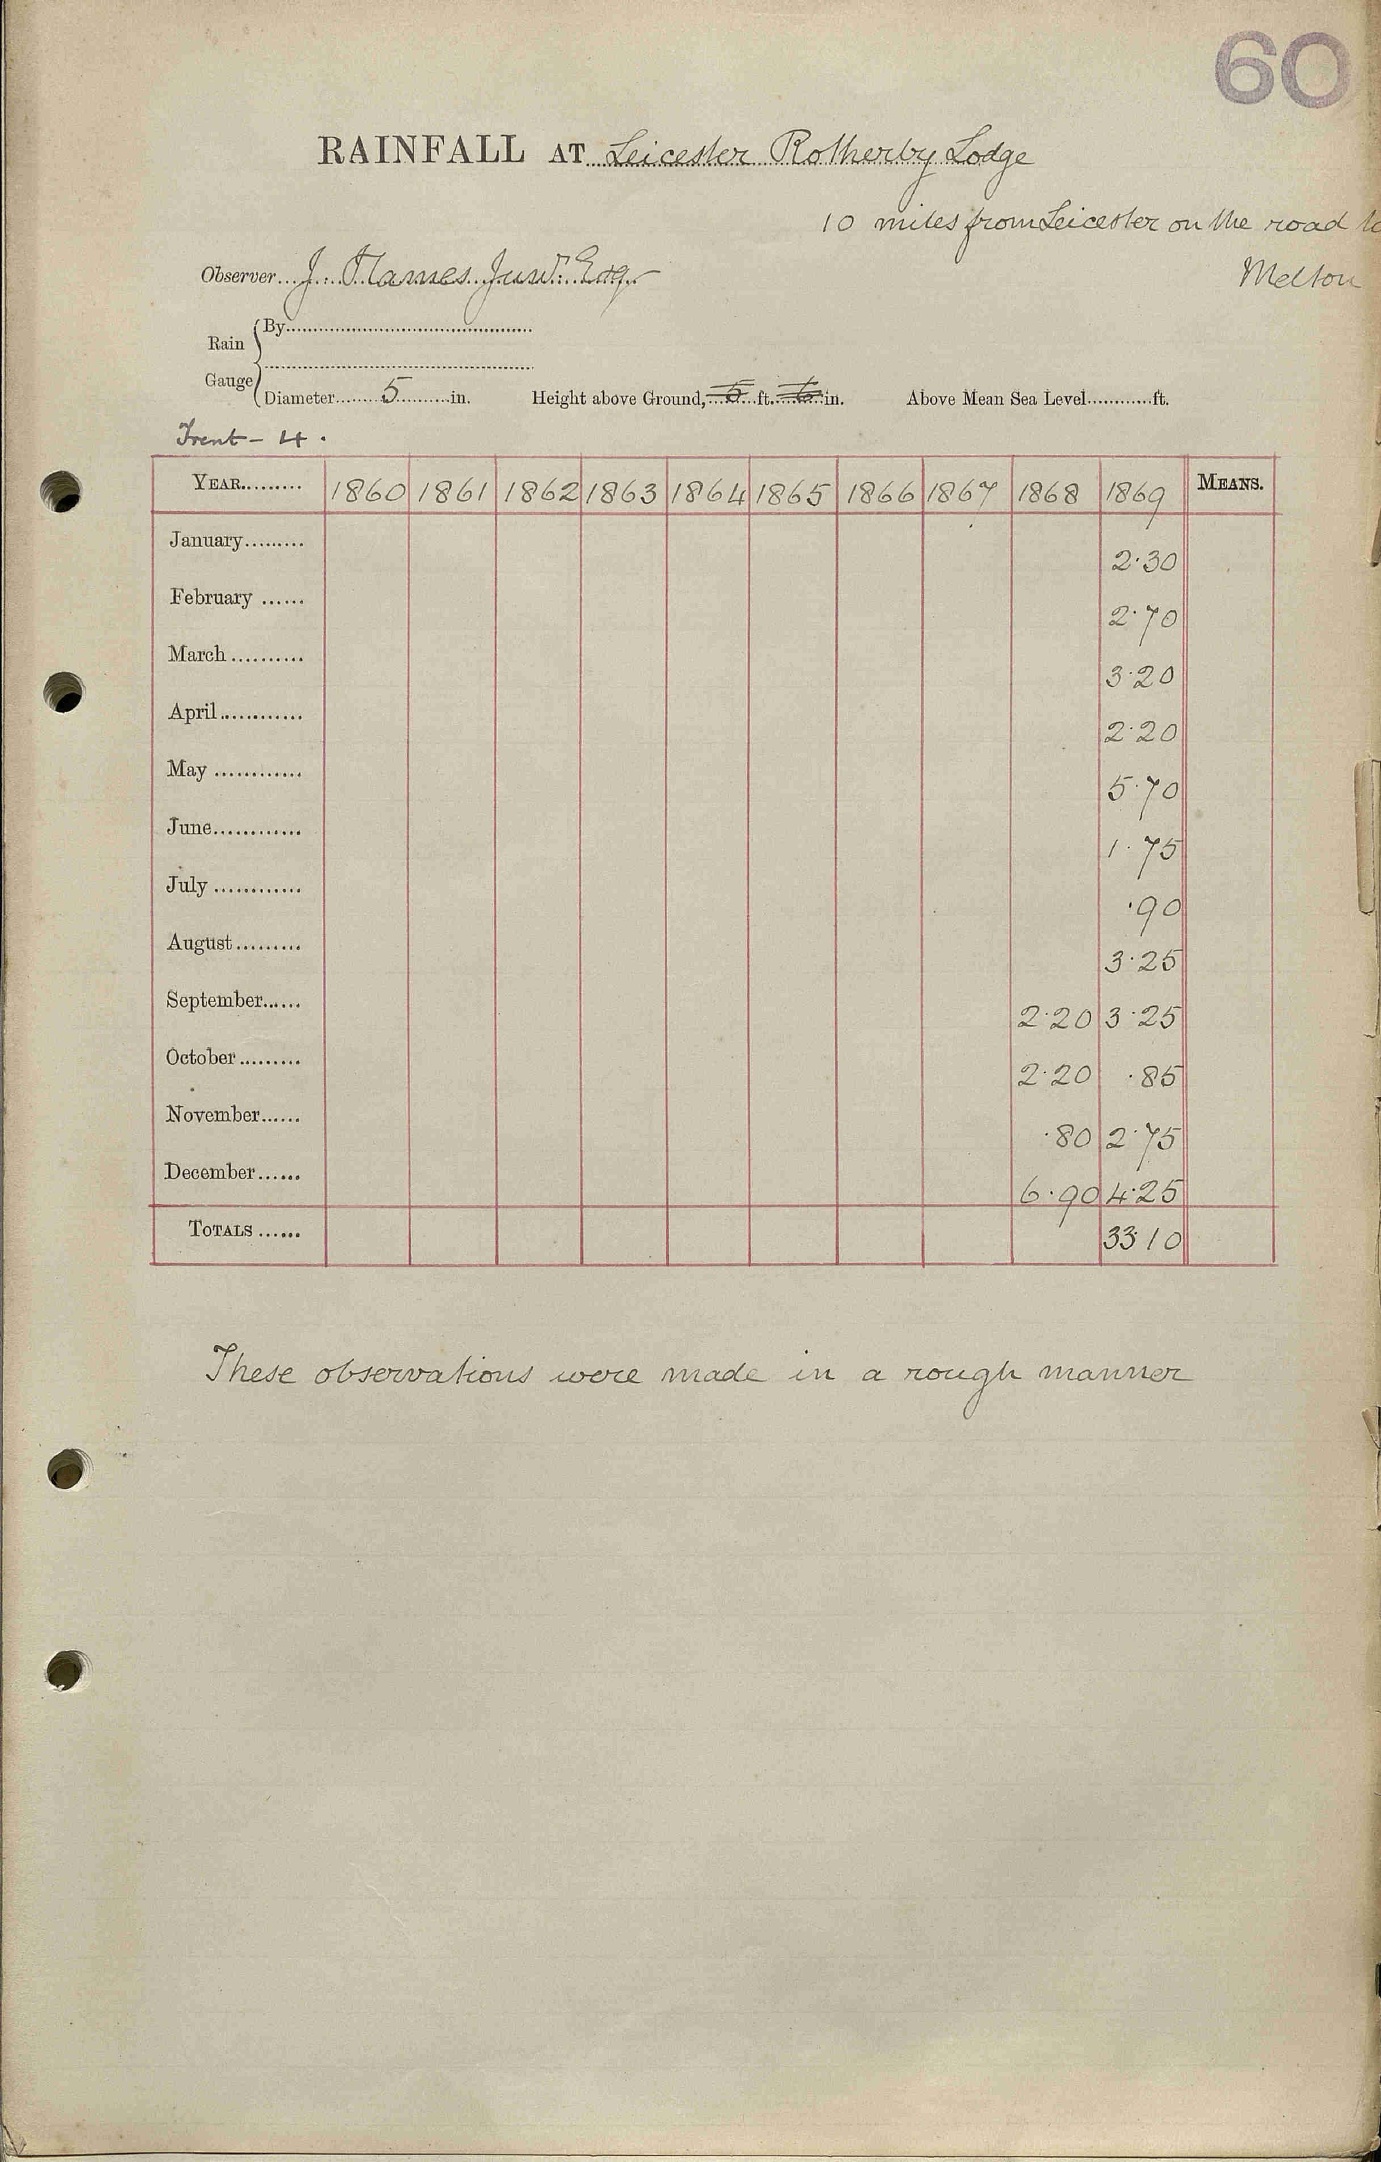 60
RAINFALL AT Leicester Rotherby Lodge
10 miles from Leicester on the road to
Melton
Observer J. Hames Junr. Esq.
Rain Gauge
By
Diameter 5 in. Height above Ground, 5 ft. 6 in. Above Mean Sea Level ft.
Trent - 4.
YEAR 1860 1861 1862 1863 1864 1865 1866 1867 1868 1869 MEANS.
January 2.30
February 2.70
March 3.20
April 2.20
May 5.70
June 1.75
July .90
August 3.25
September 2.20 3.25
October 2.20 .85
November .80 2.75
December 6.90 4.25
TOTALS 33.10
These observations were made in a rough manner